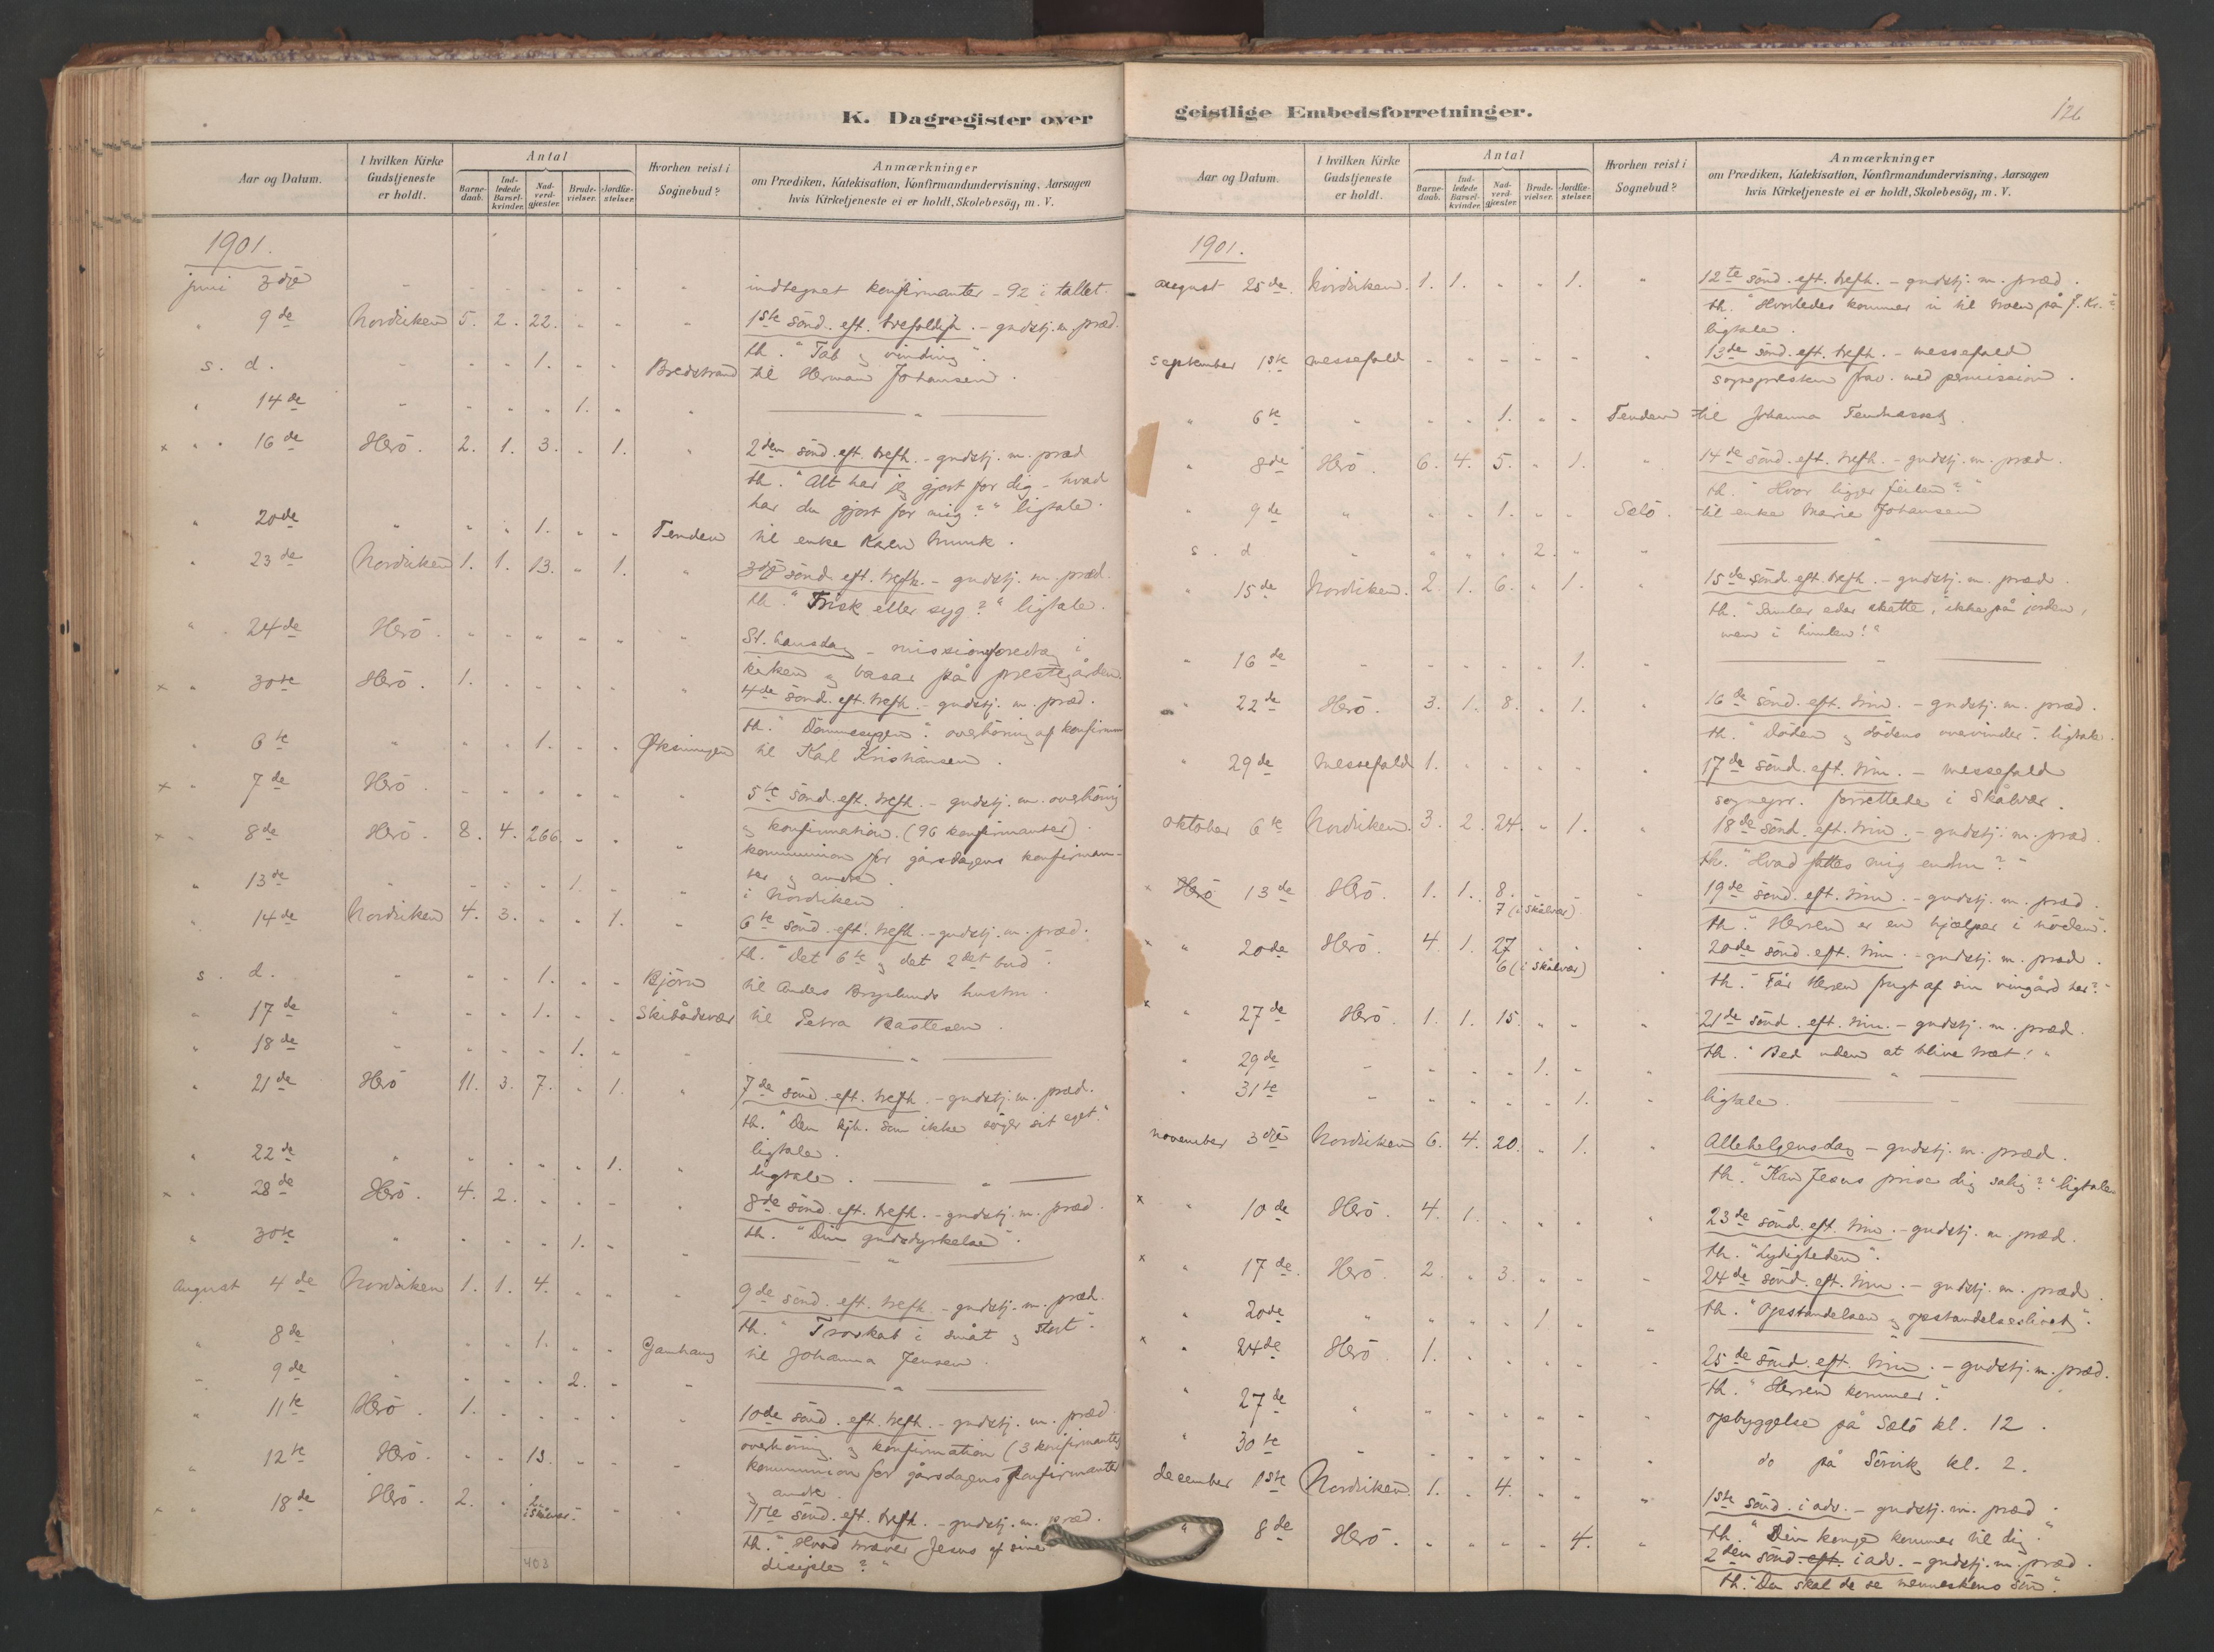 K. Dagregister over
Aar og Datum.
I hvilken Kirke Gudstjeneste er holdt.
Antal
Barnedaab.
Indledede Barselkvinder.
Nadverdgjæster.
Brudevielser.
Jordfæstelser.
Hvorhen reist i Sognebud?
Anmærkninger
om Prædiken, Katekisation, Konfirmandundervisning, Aarsagen
hvis Kirketjeneste ei er holdt, Skolebesög, m. V.
1901.
juni 3dje - - - - - - - indtegnet konfirmanter - 92 i tallet.
" 9de Nordviken 5. 2. 22. - - - 1ste sönd. eft. trefoldigh. - gudstj. m. præd.
th. "Tab og vinding".
s. d. - - - 1. - - Bredstrand til Herman Johansen.
" 14de - - - - 1. - -
× " 16de Herö. 2. 1. 3. - 1. - 2den sönd. eft. trefh. - gudstj. m. præd
th. "Alt har jeg gjort for dig - hvad
har du gjort for mig?" ligtale.
" 20de " " " 1. - - Tenden til enke Karen Munk.
" 23de Nordviken 1. 1. 13. " 1. " 3dje sönd. eft. trefh. - gudstj. m. præd.
th. "Frisk eller syg?" ligtale.
" 24de Herö. - - - - - - St. hansdag - missionsforedrag i
kirken og basar på prestegården.
× " 30te Herö. 1. - - - - - 4de sönd. eft. trefh. - gudstj. m. præd.
th. "Dømmesygen". overhöring af konfirm
" 6te " " " 1. - - Øksningen til Karl Kristiansen.
× " 7de Herö. - - - - - - 5te sönd. eft. trefh. - gudstj. m. overhöring
og konfirmation. (96 konfirmanter).
× " 8de Herö. 8. 4. 266. - - - kommunion for gårsdagens konfirman-
ter og andre.
" 13de " - - - 1. - - i Nordviken.
" 14de Nordviken 4. 3. - - 1. - 6te sönd. eft. trefh. - gudstj. m. præd.
th. "Det 6te og det 2det bud".
s. d. " " " 1. - - Björn til Anders Bryslunds hustru.
" 17de " " " 1. - - Skibådsvær til Petra Bastesen.
" 18de - - - - 1. - -
" 21de Herö 11. 3. 7. " 1. " 7de sönd. eft. trefh. - gudstj. m. præd.
th. "Den kjh. som ikke söger sit eget."
ligtale.
" 22de " " " " " 1. " ligtale.
× " 28de Herö. 4. 2. - - - - 8de sönd. eft. trefh. - gudstj. m. præd.
th. "Din gudsdyrkelse".
" 30te " " " " 1. - -
August 4de Nordviken 1. 1. 4. " " " 9de sönd. eft. trefh. - gudstj. m. præd.
th. "Troskab i småt og stort".
" 8de " " " 1. - - Gauhaug til Johanna Jensen.
" 9de " " " " 2. - -
" 11te Herö. 1. - - - - - 10de sönd. eft. trefh. - gudstj. m. præd.
overhöring og konfirmation (3 konfirmanter)
" 12te Herö. - - 13. - - - kommunion for gårsdagens konfirmanter
og andre.
× " 18de Herö. 2. " 2 i Skålvær. - - - 11te sönd. eft. trefh. - gudstj. m. præd.
th. "Hvad kræver Jesus af sine
disciple?"
403
geistlige Embedsforretninger.
126
Aar og Datum.
I hvilken Kirke Gudstjeneste er holdt.
Antal
Barnedaab.
Indledede Barselkvinder.
Nadverdgjæster.
Brudevielser.
Jordfæstelser.
Hvorhen reist i Sognebud?
Anmærkninger
om Prædiken, Katekisation, Konfirmandundervisning, Aarsagen
hvis Kirketjeneste ei er holdt, Skolebesög, m. V.
1901.
august 25de Nordviken. 1. 1. " " 1. " 12te sönd. eft. trefh. - gudstj. m. præd.
th. "Hvorledes kommer vi til troen på J. Kr.?"
ligtale.
september 1ste messefald - - - - - - 13de sönd. eft. trefh. - messefald
sognepresten frav. med permission.
" 6te " " " 1. - - Tenden til Johanna
" 8de Herö. 6. 4. 5. " 1. " 14de sönd. eft. trefh. - gudstj. m. præd.
th. "Hvor ligger feilen?"
" 9de " " " 1. - - Sölö. til enke Marie Johansen
s. d. " " " " 2. " "
" 15de Nordviken. 2. 1. 6. " 1. " 15de sönd. eft. trefh. - gudstj. m. præd.
th. "Samler eder skatte, ikke på jorden,
men i himlen!"
" 16de - - - - - 1. -
" 22de Herö. 3. 1. 8. " 1. " 16de sönd. eft. trin. - gudstj. m. præd.
th. "Döden og dödens overvinder". ligtale.
" 29de messefald 1. - - - - - 17de sönd. eft. trin. - messefald
sognepr. forrettede i Skålvær.
oktober 6te Nordviken. 3. 2. 24. " 1. " 18de sönd. eft. trin. - gudstj. m. præd.
th. "Hvad fattes mig endnu?"
× Herö 13de Herö. 1. 1. 8. - - - 19de sönd. eft. trin. - gudstj. m. præd.
7 (i Skålvær)
th. "Herren er en hjælper i nöden".
× " 20de Herö. 4. 1. 27 - - - 20de sönd. eft. trin. - gudstj. m. præd.
6 (i Skålvær)
th. "Får Herren frugt af sin vingård her?"
× " 27de Herö. 1. 1. 15. " " " 21de sönd. eft. trin. - gudstj. m. præd.
th. "Bed uden at blive træt!"
" 29de - - - - 1. - -
" 31te - - - - - 1. - ligtale.
november 3dje Nordviken 6. 4. 20. " 1. " Allehelgensdag - gudstj. m. præd.
th. "Kan Jesus prise dig salig?" ligtale.
× " 10de Herö. 4. 1. - - - - 23de sönd. eft. trin. - gudstj. m. præd.
th. "Lydigheden".
× " 17de. Herö. 2. " 3. - - - 24de sönd. eft. trin. - gudstj. m. præd.
th. "Opstandelsen og opstandelseslivet".
" 20de " " " " 1 - -
× " 24de Herö. 1. - - - - - 25de sönd. eft. trin. - gudstj. m. præd.
th. "Herren kommer".
" 27de " " " " " " " opbyggelse på Sölö kl. 12.
" 30te - - - - - - - do på Sörvik kl. 2.
december 1ste Nordviken. 1. " 4. - - - 1ste sönd. i adv. - gudstj. m. præd.
th. "Din konge kommer til dig".
" 8de Herö. - - - - 4. " 2den sönd. eft. i adv. - gudstj. m. præd.
th. "Da skal de se menneskens sön".